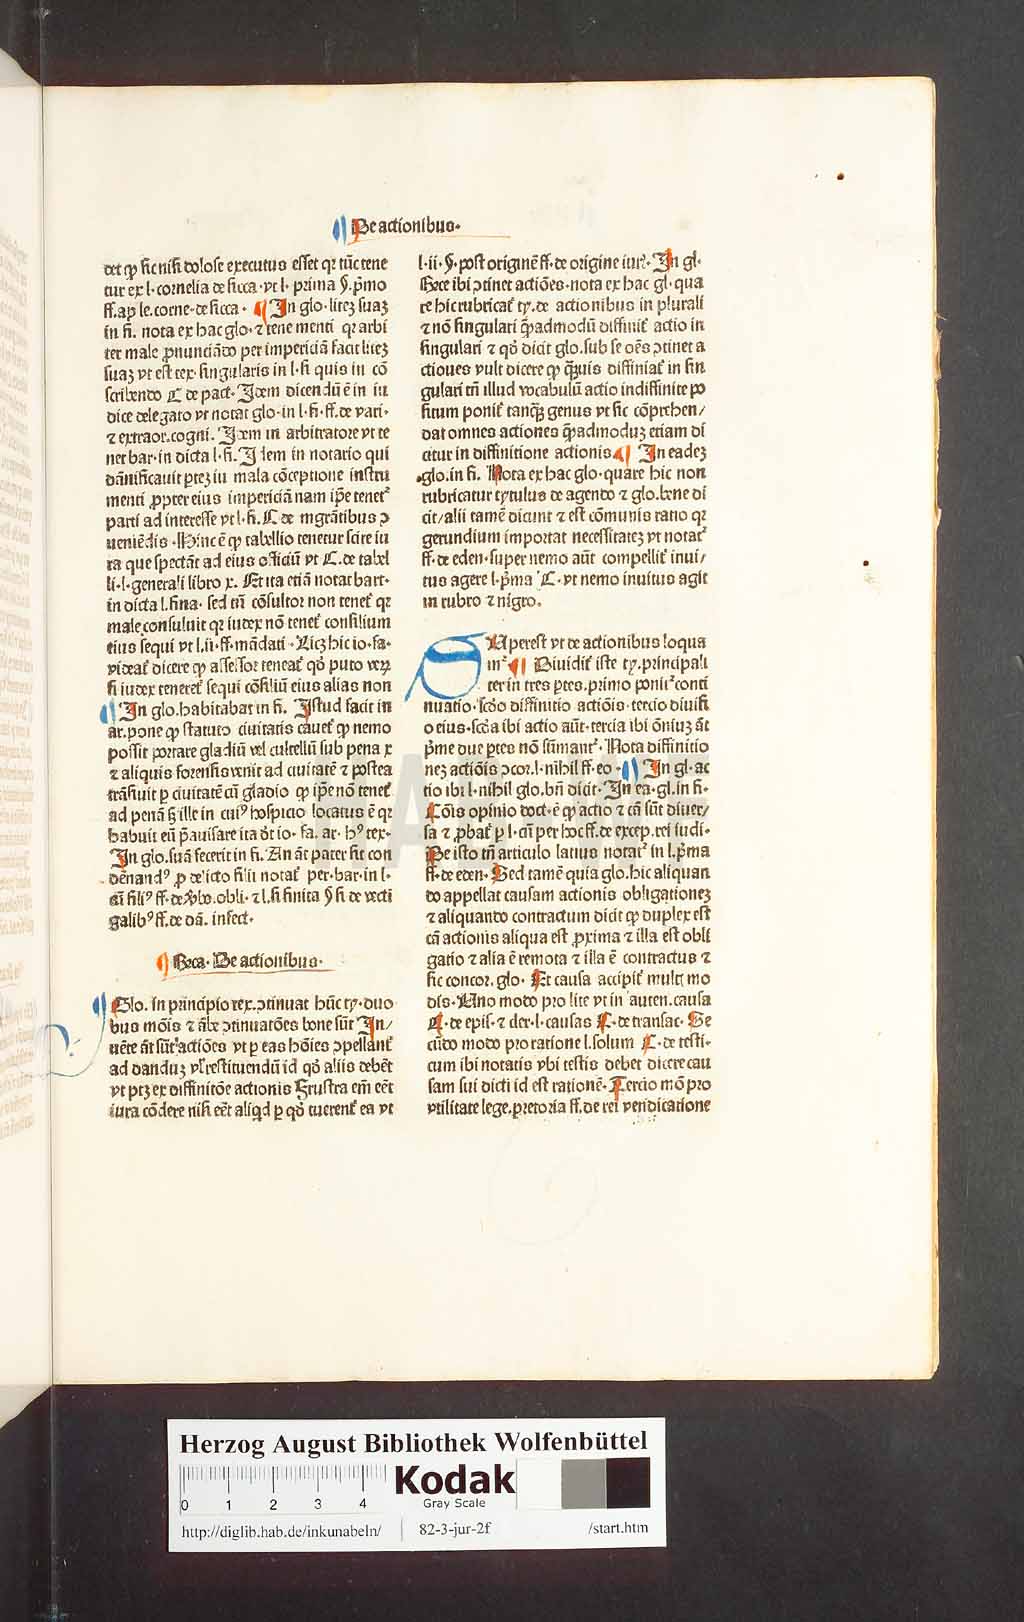 De actionibus.
det ꝙ sic nisi dolose executus esset qꝛ tūc tene
tur ex l. cornelia de sicca. vt l. prima §. pͥmo
ff. ad le. corne. de sicca. ¶ In glo. litē suaꝫ
in fi. nota ex hac glo. ⁊ tene menti qꝛ arbi
ter male ꝓnunciādo per impericiā facit litēꝫ
suaꝫ vt est tex. singularis in l. fi quis in cō
scribendo C de pact. Idem dicendū ē in iu
dice delegato vt notat glo. in l. fi. ff. de vari.
⁊ extraor. cogni. Idem in arbitratore vt te
net bar. in dicta l. fi. Idem in notario qui
dānificauit ꝑteꝫ in mala cōceptione instru
menti ꝓpter eius impericiā nam ip̄e tenet᷑
parti ad interesse vt l. fi. C de mgrātibus ꝯ
ueniēdis. Hinc ē ꝙ tabellio tenetur scire iu
ra que spectāt ad eius officiū vt C. de tabel
li. l. generali libro x. Et ita etiā notat bart.
in dicta l. fina. sed tn̄ cōsultor non tenet᷑ qꝛ
male consuluit qꝛ iudex nō tenet᷑ consilium
eius sequi vt l. ii. ff. mādati. Licꝫ hic io. fa.
videat᷑ dicere ꝙ assessor teneat᷑ qd̓ puto veꝝ
si iudex teneret᷑ sequi cōsiliū eius alias non
In glo. habitabat in fi. Istud facit in
ar. pone ꝙ statuto ciuitatis cauet᷑ ꝙ nemo
possit portare gladiū vel cultellū sub pena x
⁊ aliquis forensis venit ad ciuitatē ⁊ postea
trāsiuit ꝑ ciuitatē cū gladio ꝙ ip̄e nō tenet᷑
ad penā sꝫ ille in cuiꝰ hospicio locatus ē qꝛ
habuit eū p̄auisare ita dt̄ io. fa. ar. hꝰ tex.
In glo. suā fecerit in fi. An āt pater sit con
dēnandꝰ ꝓ delicto filii notat᷑ per bar. in l.
si filiꝰ ff. de v̓bo. obli. ⁊ l. si finita § si de vecti
galibꝰ ff. de dā. infect.
Beca. De actionibus.
Glo. in principio rex. ꝯtinuat hūc ty. duo
bus mōis ⁊ ābe ꝯtinuatōes bone sūt In/
uēte āt sūt actiōes vt ꝑ eas hōies ꝯpellant᷑
ad danduꝫ vl̓ restituendū id qd̓ aliis debēt
vt ptꝫ ex diffinitōe actionis Frustra em̄ eēt
iura cōdere nisi eēt aliqd ꝑ qd̓ tuerent᷑ ea vt
l. ii. §. post originē ff. de origine iur᷑. In gl.
Hece ibi ꝯtinet actiōes. nota ex hac gl. qua
re hic rubricat᷑ ty. de actionibus in plurali
⁊ nō singulari q̄admodū diffinit᷑ actio in
singulari ⁊ qd̓ dicit glo. sub se oēs ꝯtinet a
ctiones vult dicere ꝙ q̄uis diffiniat᷑ in sin
gulari tn̄ illud vocabulū actio indiffinite po
situm ponit᷑ tanq̄ꝫ genus vt sic cōprehen/
dat omnes actiones q̄admoduꝫ etiam di
citur in diffinitione actionis ¶ In eadeꝫ
glo. in fi. Nota ex hac glo. quare hic non
rubricatur tytulus de agendo ⁊ glo. bene di
cit/ alii tamē dicunt ⁊ est cōmunis ratio qꝛ
gerundium importat necessitateꝫ vt notat᷑
ff. de eden. super nemo aūt compellit᷑ inui/
tus agere l. pͥma C. vt nemo inuitus agit
in rubro ⁊ nigro.
SUperest vt de actionibus loqua
mᷣ ¶ Diuidit᷑ iste ty. principali
ter in tres ꝑtes. primo ponit᷑ conti
nuatio. scd̓o diffinitio actiōis. tercio diuisi
o eius. scd̓a ibi actio aūt. tercia ibi ōniuꝫ āt
pͥme due ptes nō sūmant᷑. Nota diffinitio
neꝫ actiōis ꝯcor. l. nihil ff. eo. ¶ In gl. ac
tio ibi l. nihil glo. bn̄ dicit. In ea. gl. in fi.
Cōis opinio doct. ē ꝙ actio ⁊ cā sūt diuer.
sa ⁊ ꝓbat᷑ ꝑ l. cū per hoc ff. de excep. rei iudi.
De isto tn̄ articulo latius notat᷑ in l. pͥma
ff. de eden. Sed tamē quia glo. hic aliquan
do appellat causam actionis obligationeꝫ
⁊ aliquando contractum dicit ꝙ duplex est
cā actionis aliqua est ꝓxima ⁊ illa est obli
gatio ⁊ alia ē remota ⁊ illa ē contractus ⁊
sic concor. glo. Et causa accipit᷑ multꝭ mo
dis. Uno modo pro lite vt in auten. causa
C. de epis. ⁊ cler. l. causas C. de transac. Se
cūdo modo pro ratione l. solum C. de testi.
cum ibi notatis vbi testis debet dicere cau
sam sui dicti id est rationē. Tercio mō pro
vtilitate lege. pretoria ff. de rei vendicatione
HAB WF
Herzog August Bibliothek Wolfenbüttel
0 1 2 3 4
Kodak
Gray Scale
http://diglib.hab.de/inkunabeln/ 82-3-jur-2f /start.htm